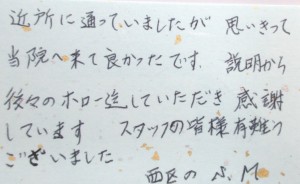 近所に通っていましたが 思いきって
当院へ来て良かったです. 説明から
後々のホロー迄していただき 感謝
しています スタッフの皆様有難う
ございました
西区の S.M